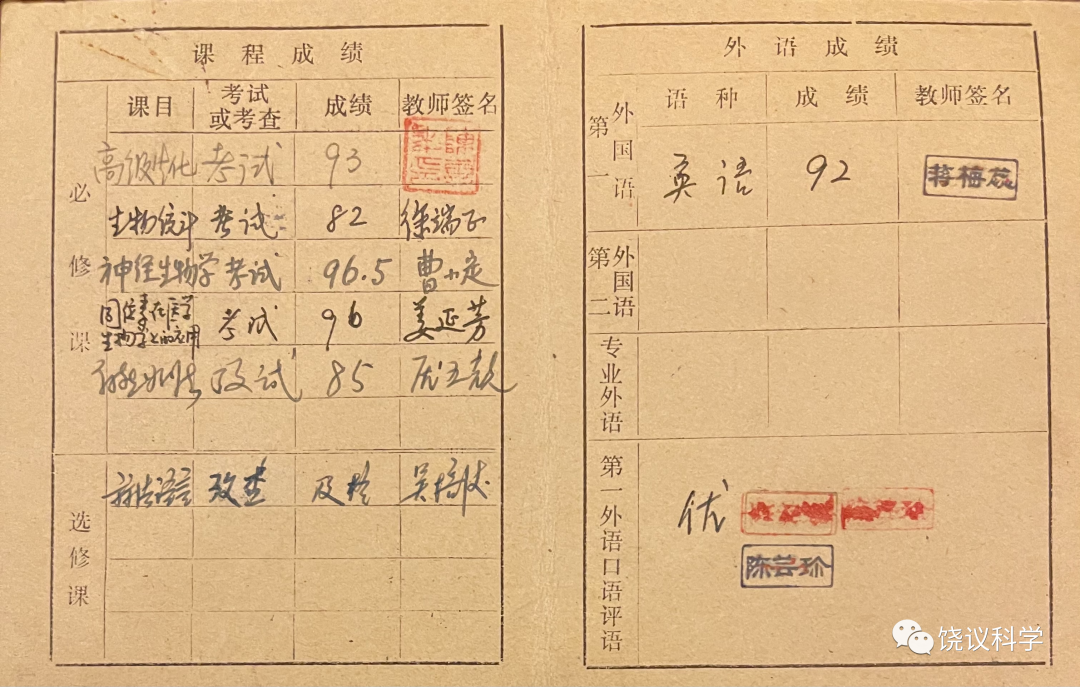 课程成绩
课目 考试或考查 成绩 教师签名
必修课
高级生化 考试 93
生物统计 考试 82 徐端正
神经生物学 考试 96.5 曹小定
同位素在医学生物学上的应用 考试 96 姜延芳
考试 85
选修课
算法语言 考查 及格
外语成绩
语种 成绩 教师签名
第一外国语 英语 92
第二外国语
专业外语
第一外语口语评语 优
陈芸珍
饶议科学